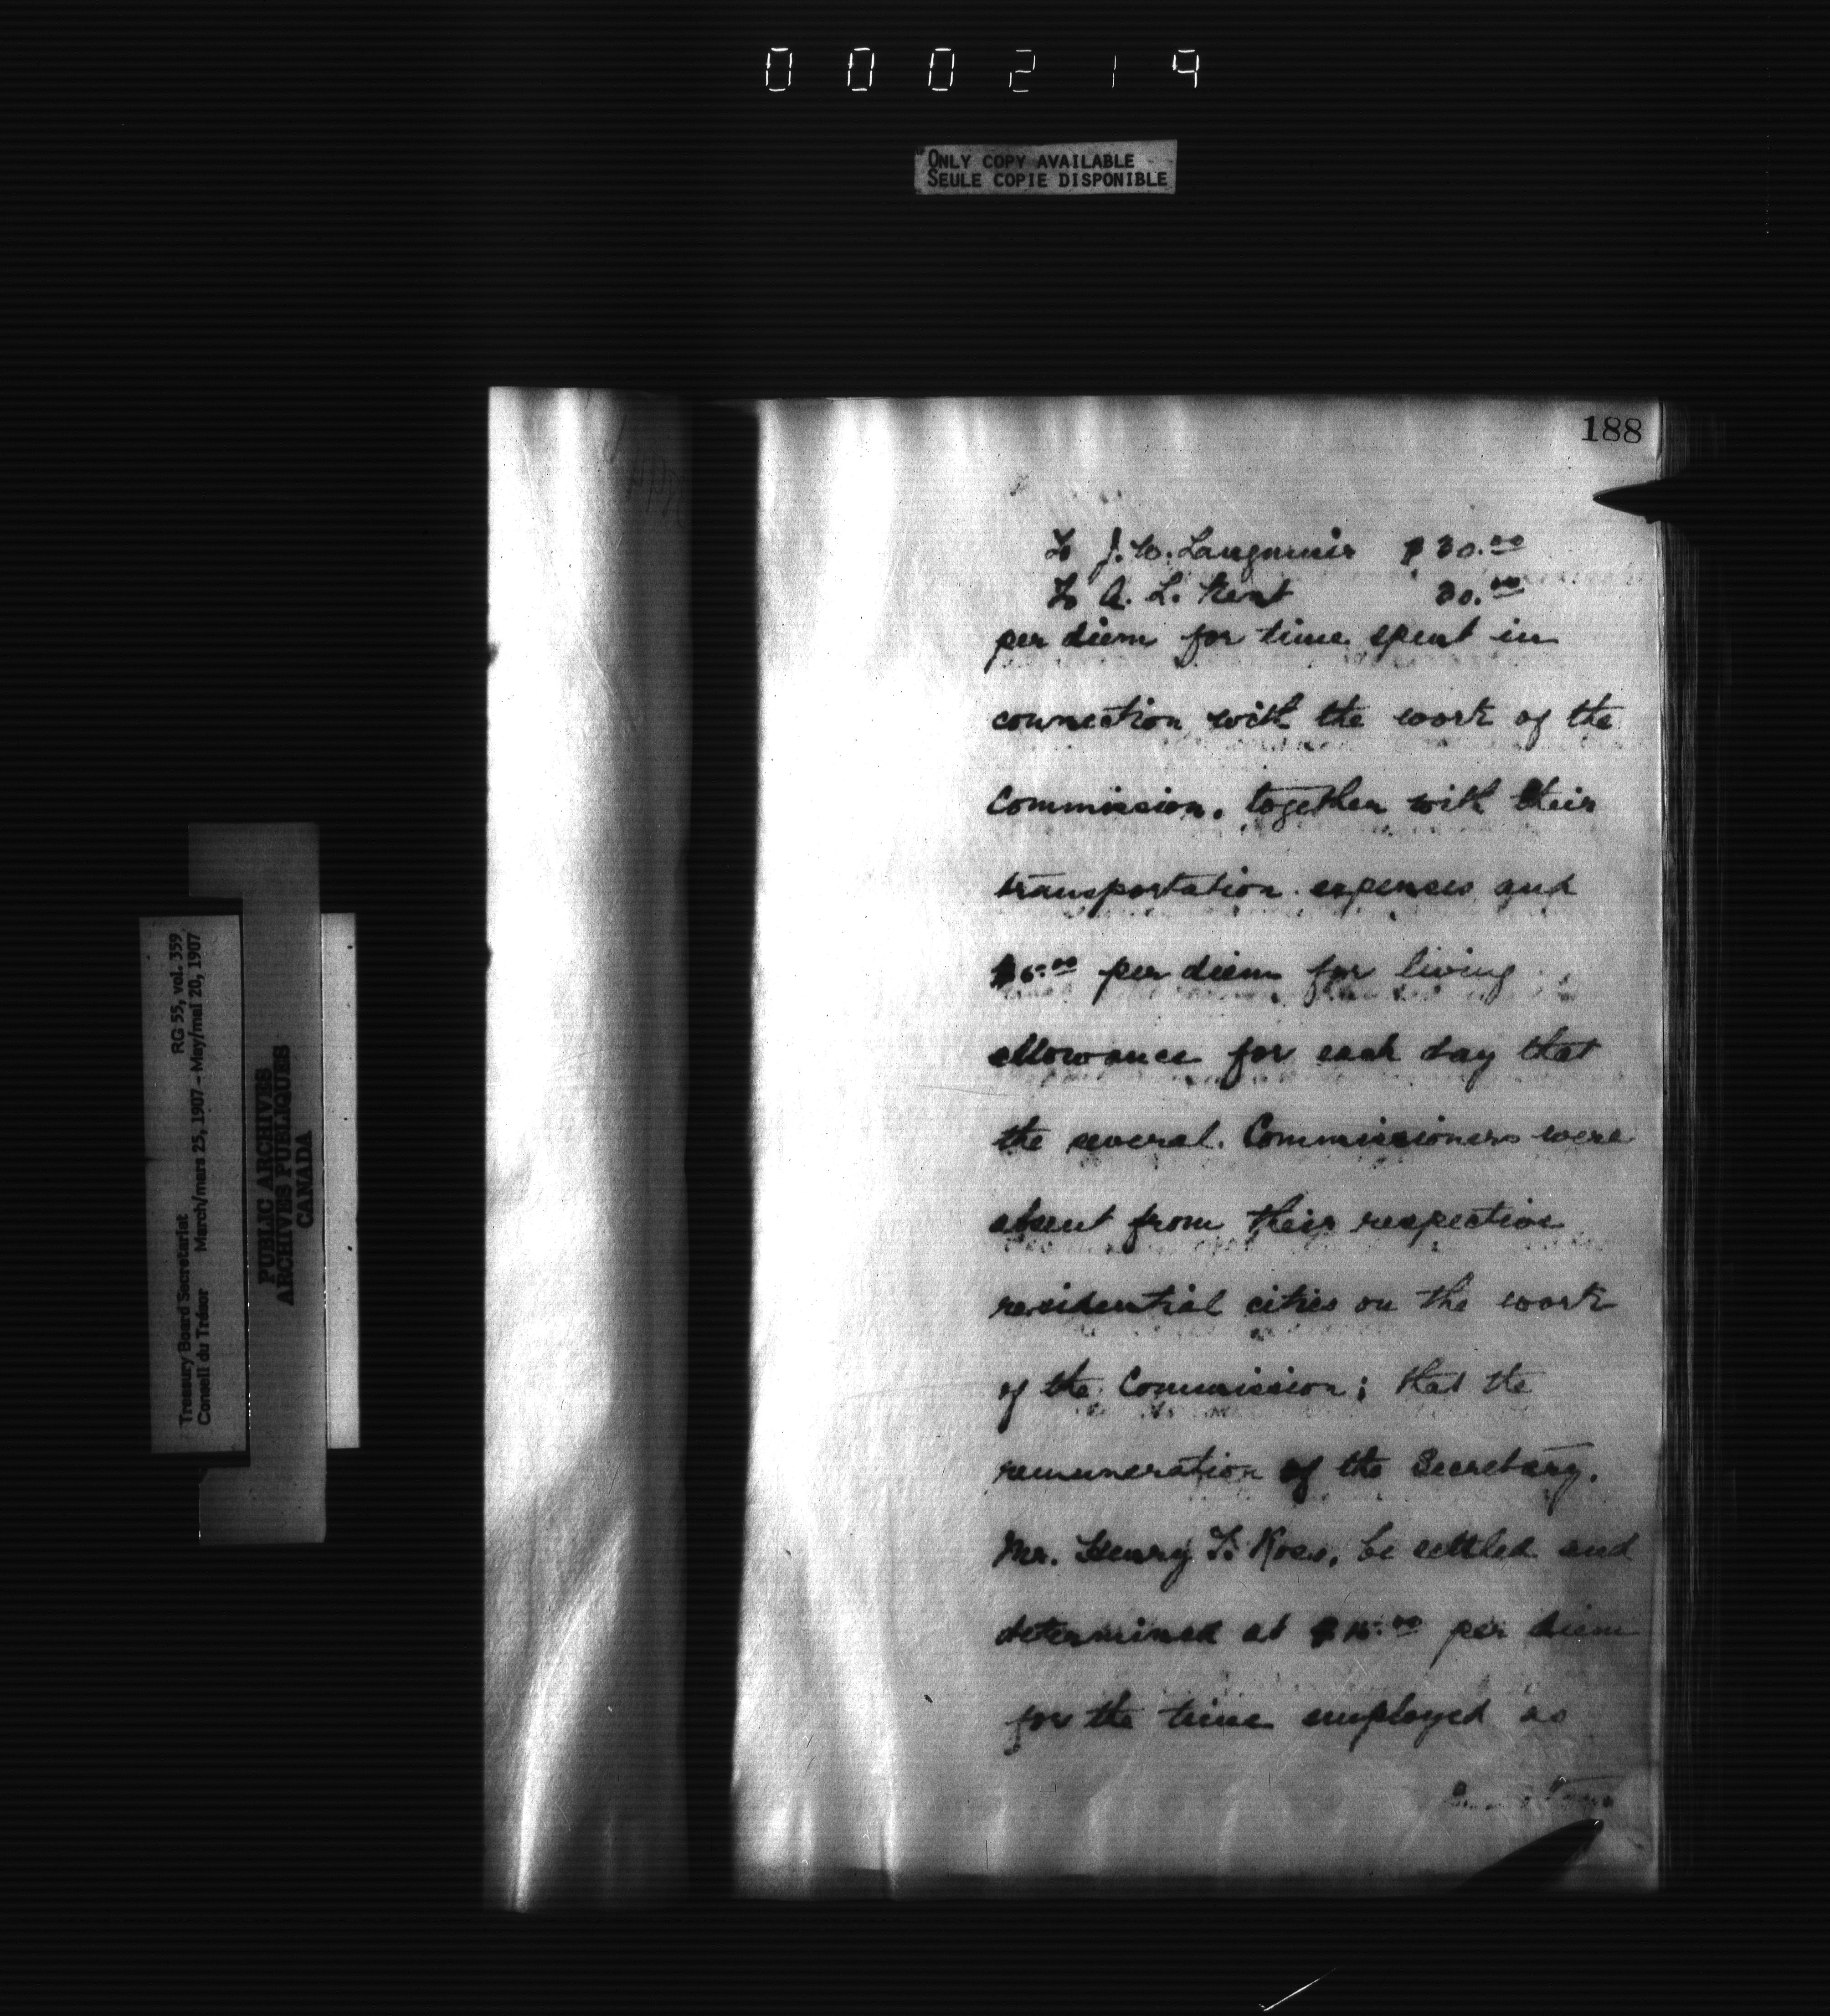 000219
ONLY COPY AVAILABLE
SEULE COPIE DISPONIBLE
188
To J. W. Langmuir $30.00
To A. L. Kent 30.00
per diem for time spent in
connection with the work of the
Commission, together with their
transportation expenses and
$5.00 per diem for living
allowance for each day that
the several Commissioners were
absent from their respective
residential cities on the work
of the Commission; that the
remuneration of the Secretary,
Mr. Henry T. Ross, be settled and
determined at $15.00 per diem
for the time employed as
Treasury Board Secretariat RG 55, vol. 359
Conseil du Trésor March/mars 25, 1907 – May/mai 20, 1907
PUBLIC ARCHIVES
ARCHIVES PUBLIQUES
CANADA